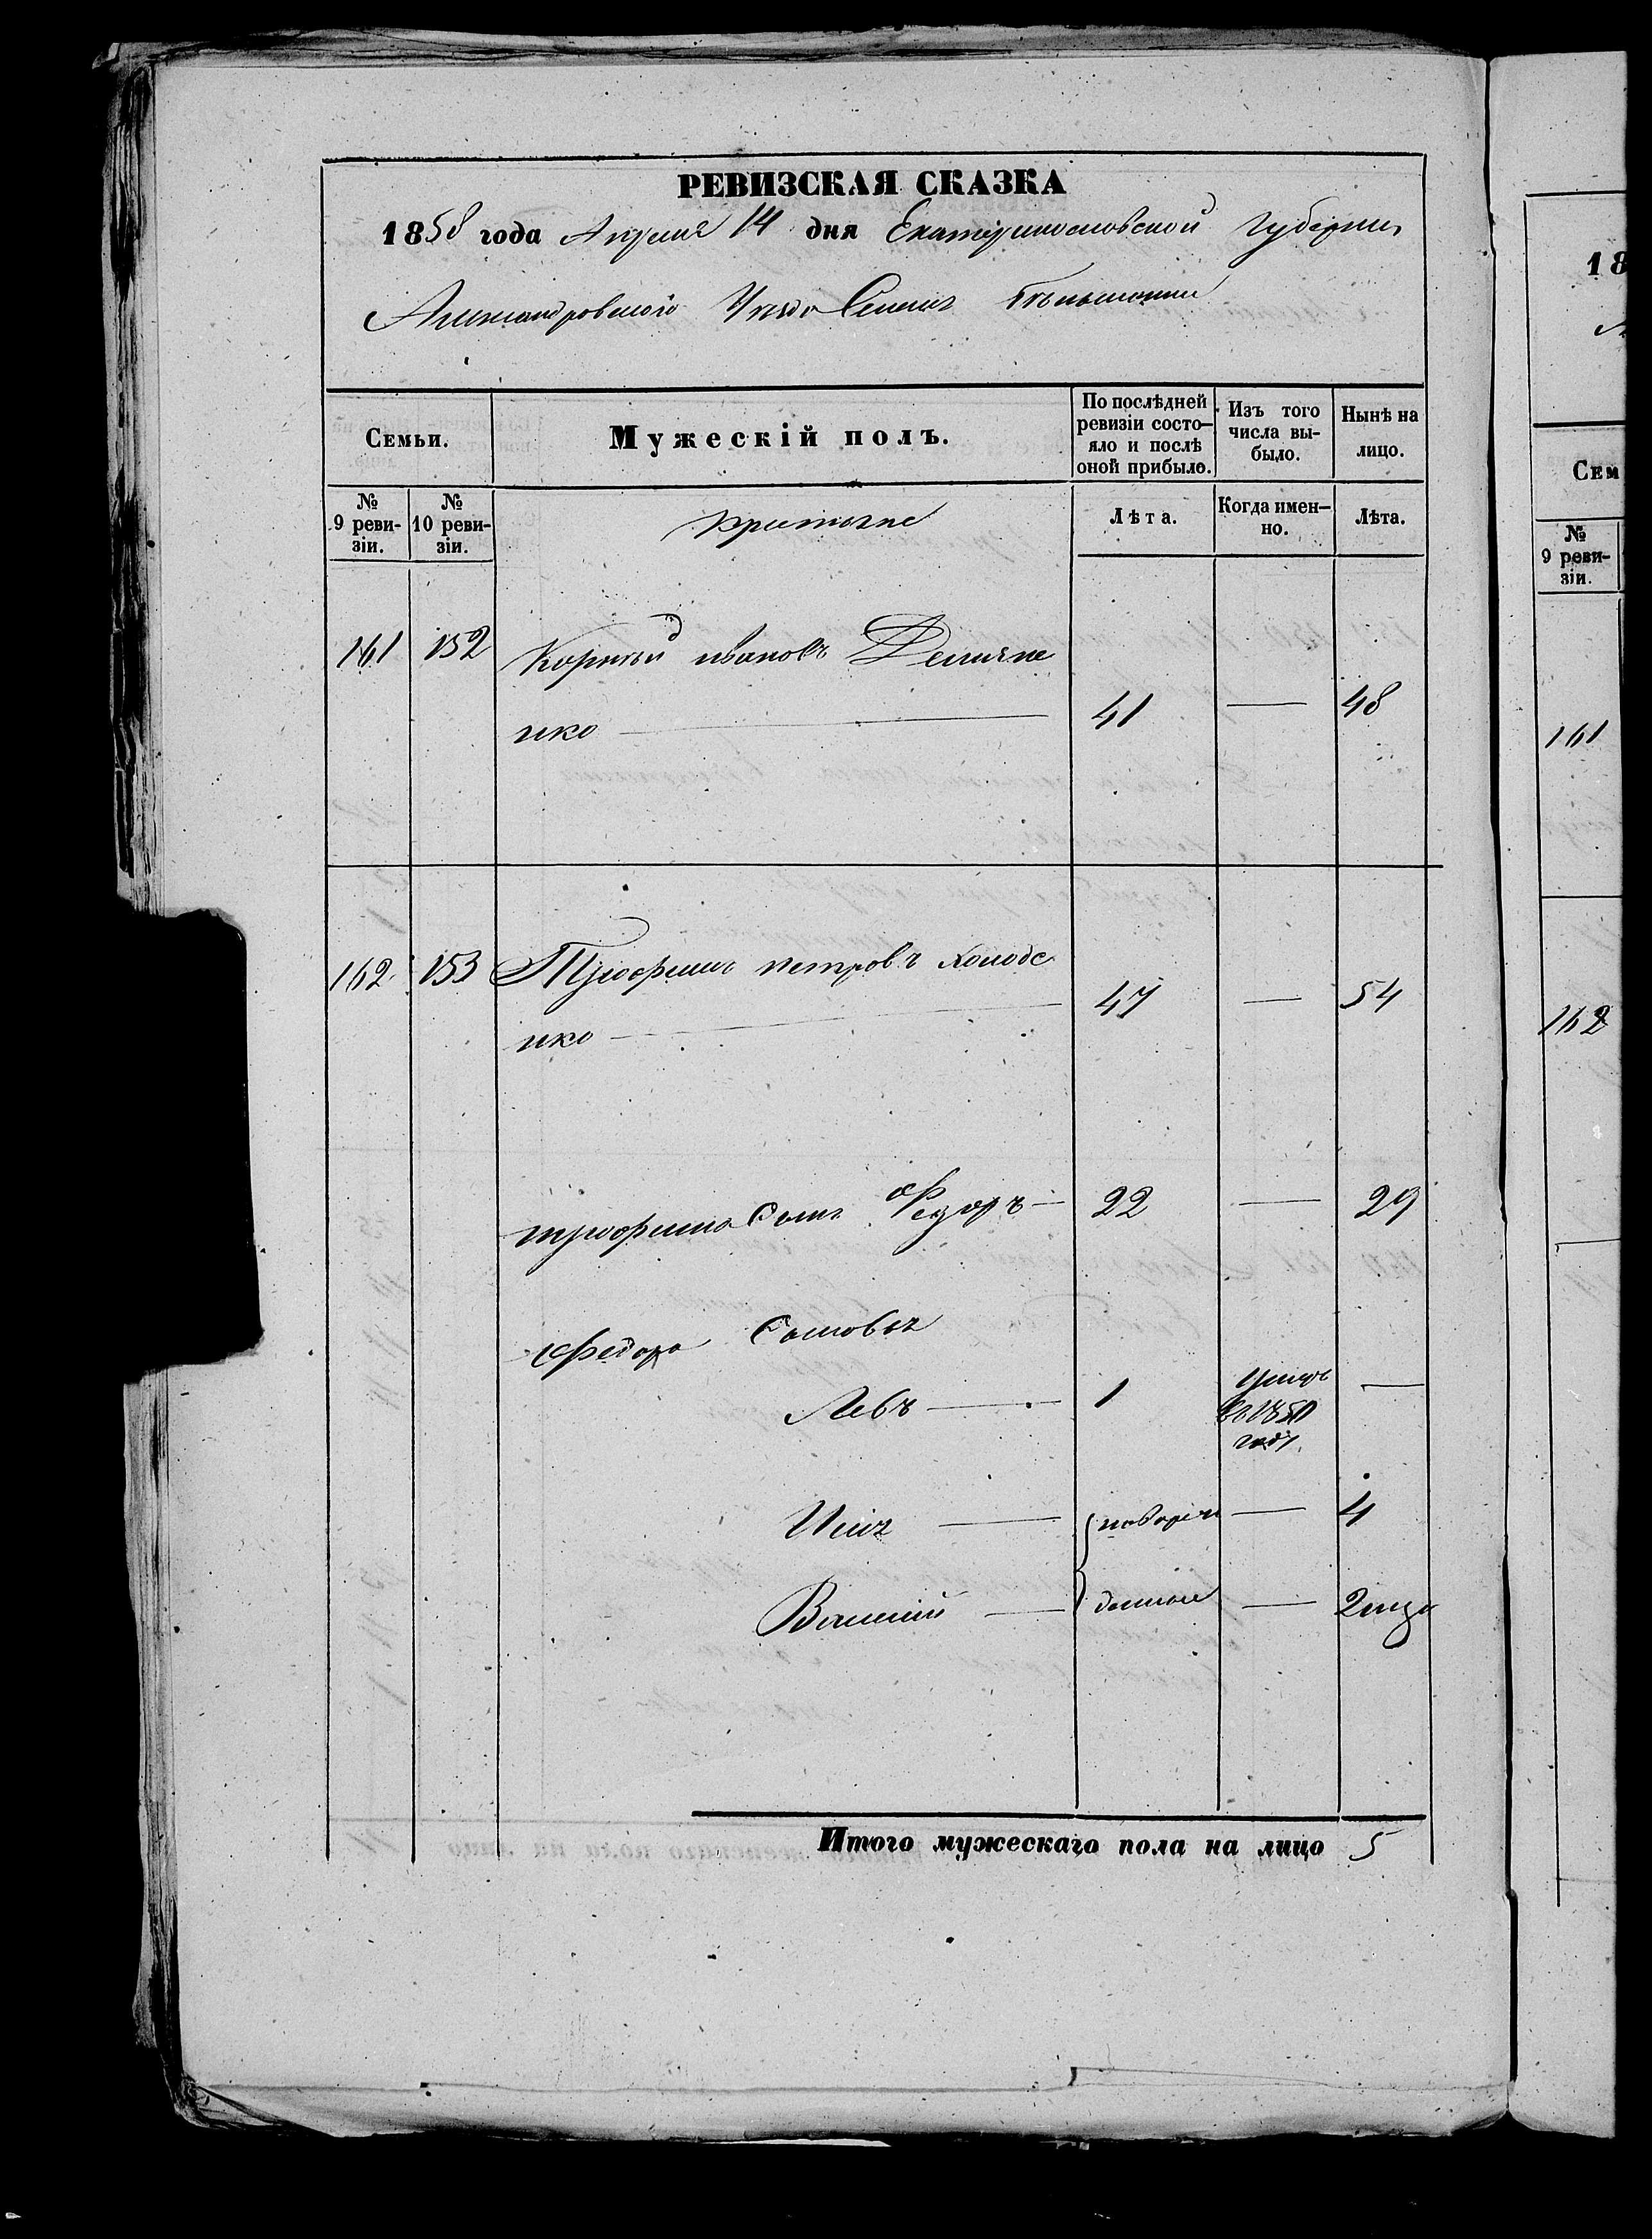 РЕВИЗСКАЯ СКАЗКА
1858 года Апреля 14 дня Екатеринославской Губернии
Александровского Уезда Села
Семьи.
Мужескій полъ.
По послѣдней ревизіи состо-
яло и послѣ
оной прибыло.
Изъ того
числа вы-
было.
Нынѣ на
лицо.
№
9 реви-
зіи.
№
10 реви-
зіи.
Лѣта.
Когда имен-
но.
Лѣта.
161 152 Корней иванов Демяне
нко — 41 — 48
162 153 Трофим петровъ Колоде
нко — 47 — 54
трофима Сынъ Федоръ — 22 — 29
Федора Сыновья
Левъ — 1 умеръ
в 1850
году —
Илия — новорож — 4
Василий — денные — 2
Итого мужескаго пола на лицо 5
18
Сем
№
9 реви-
зіи.
161
162